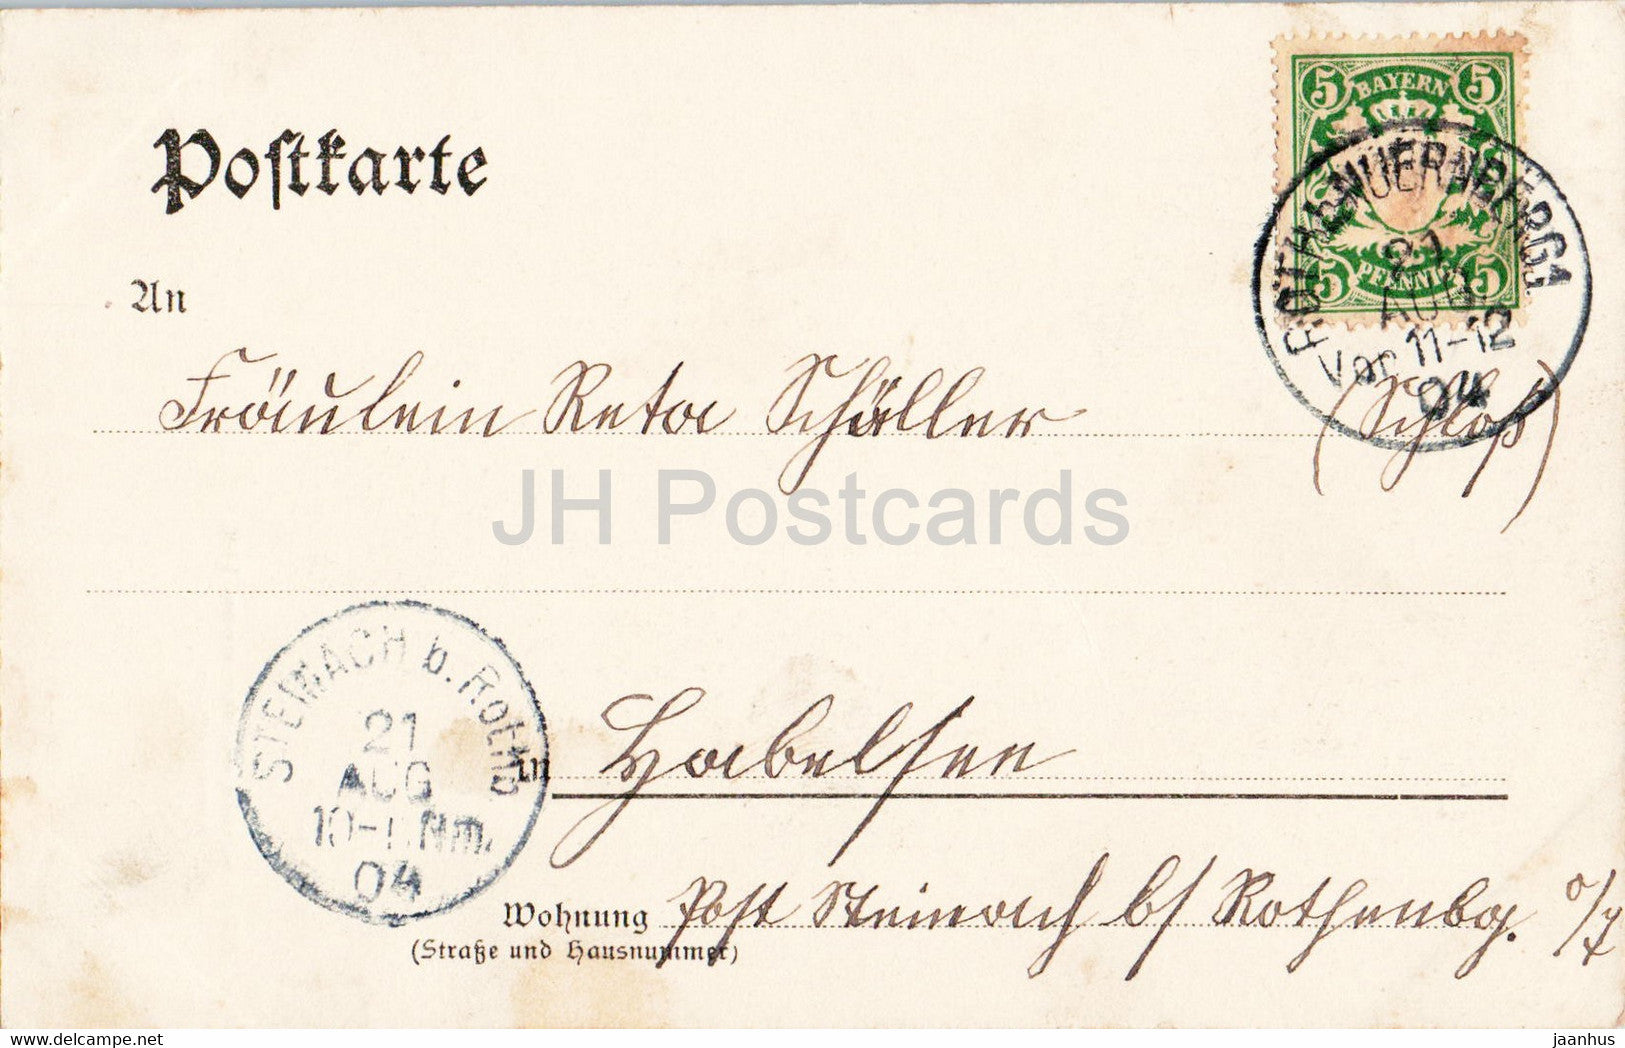 Postkarte
5 BAYERN 5
5 PFENNIG 5
NUERNBERG
21
AUG
Vor 11-12
04
An
Fräulein Reta Schäller (Schloß)
JH Postcards
STEINACH b. Rothb
21
AUG
10-11 Nm.
04
in Habelsee
Wohnung Post Steinach b/ Rothenbg. o/T
(Straße und Hausnummer)
delcampe.net
jaanhus